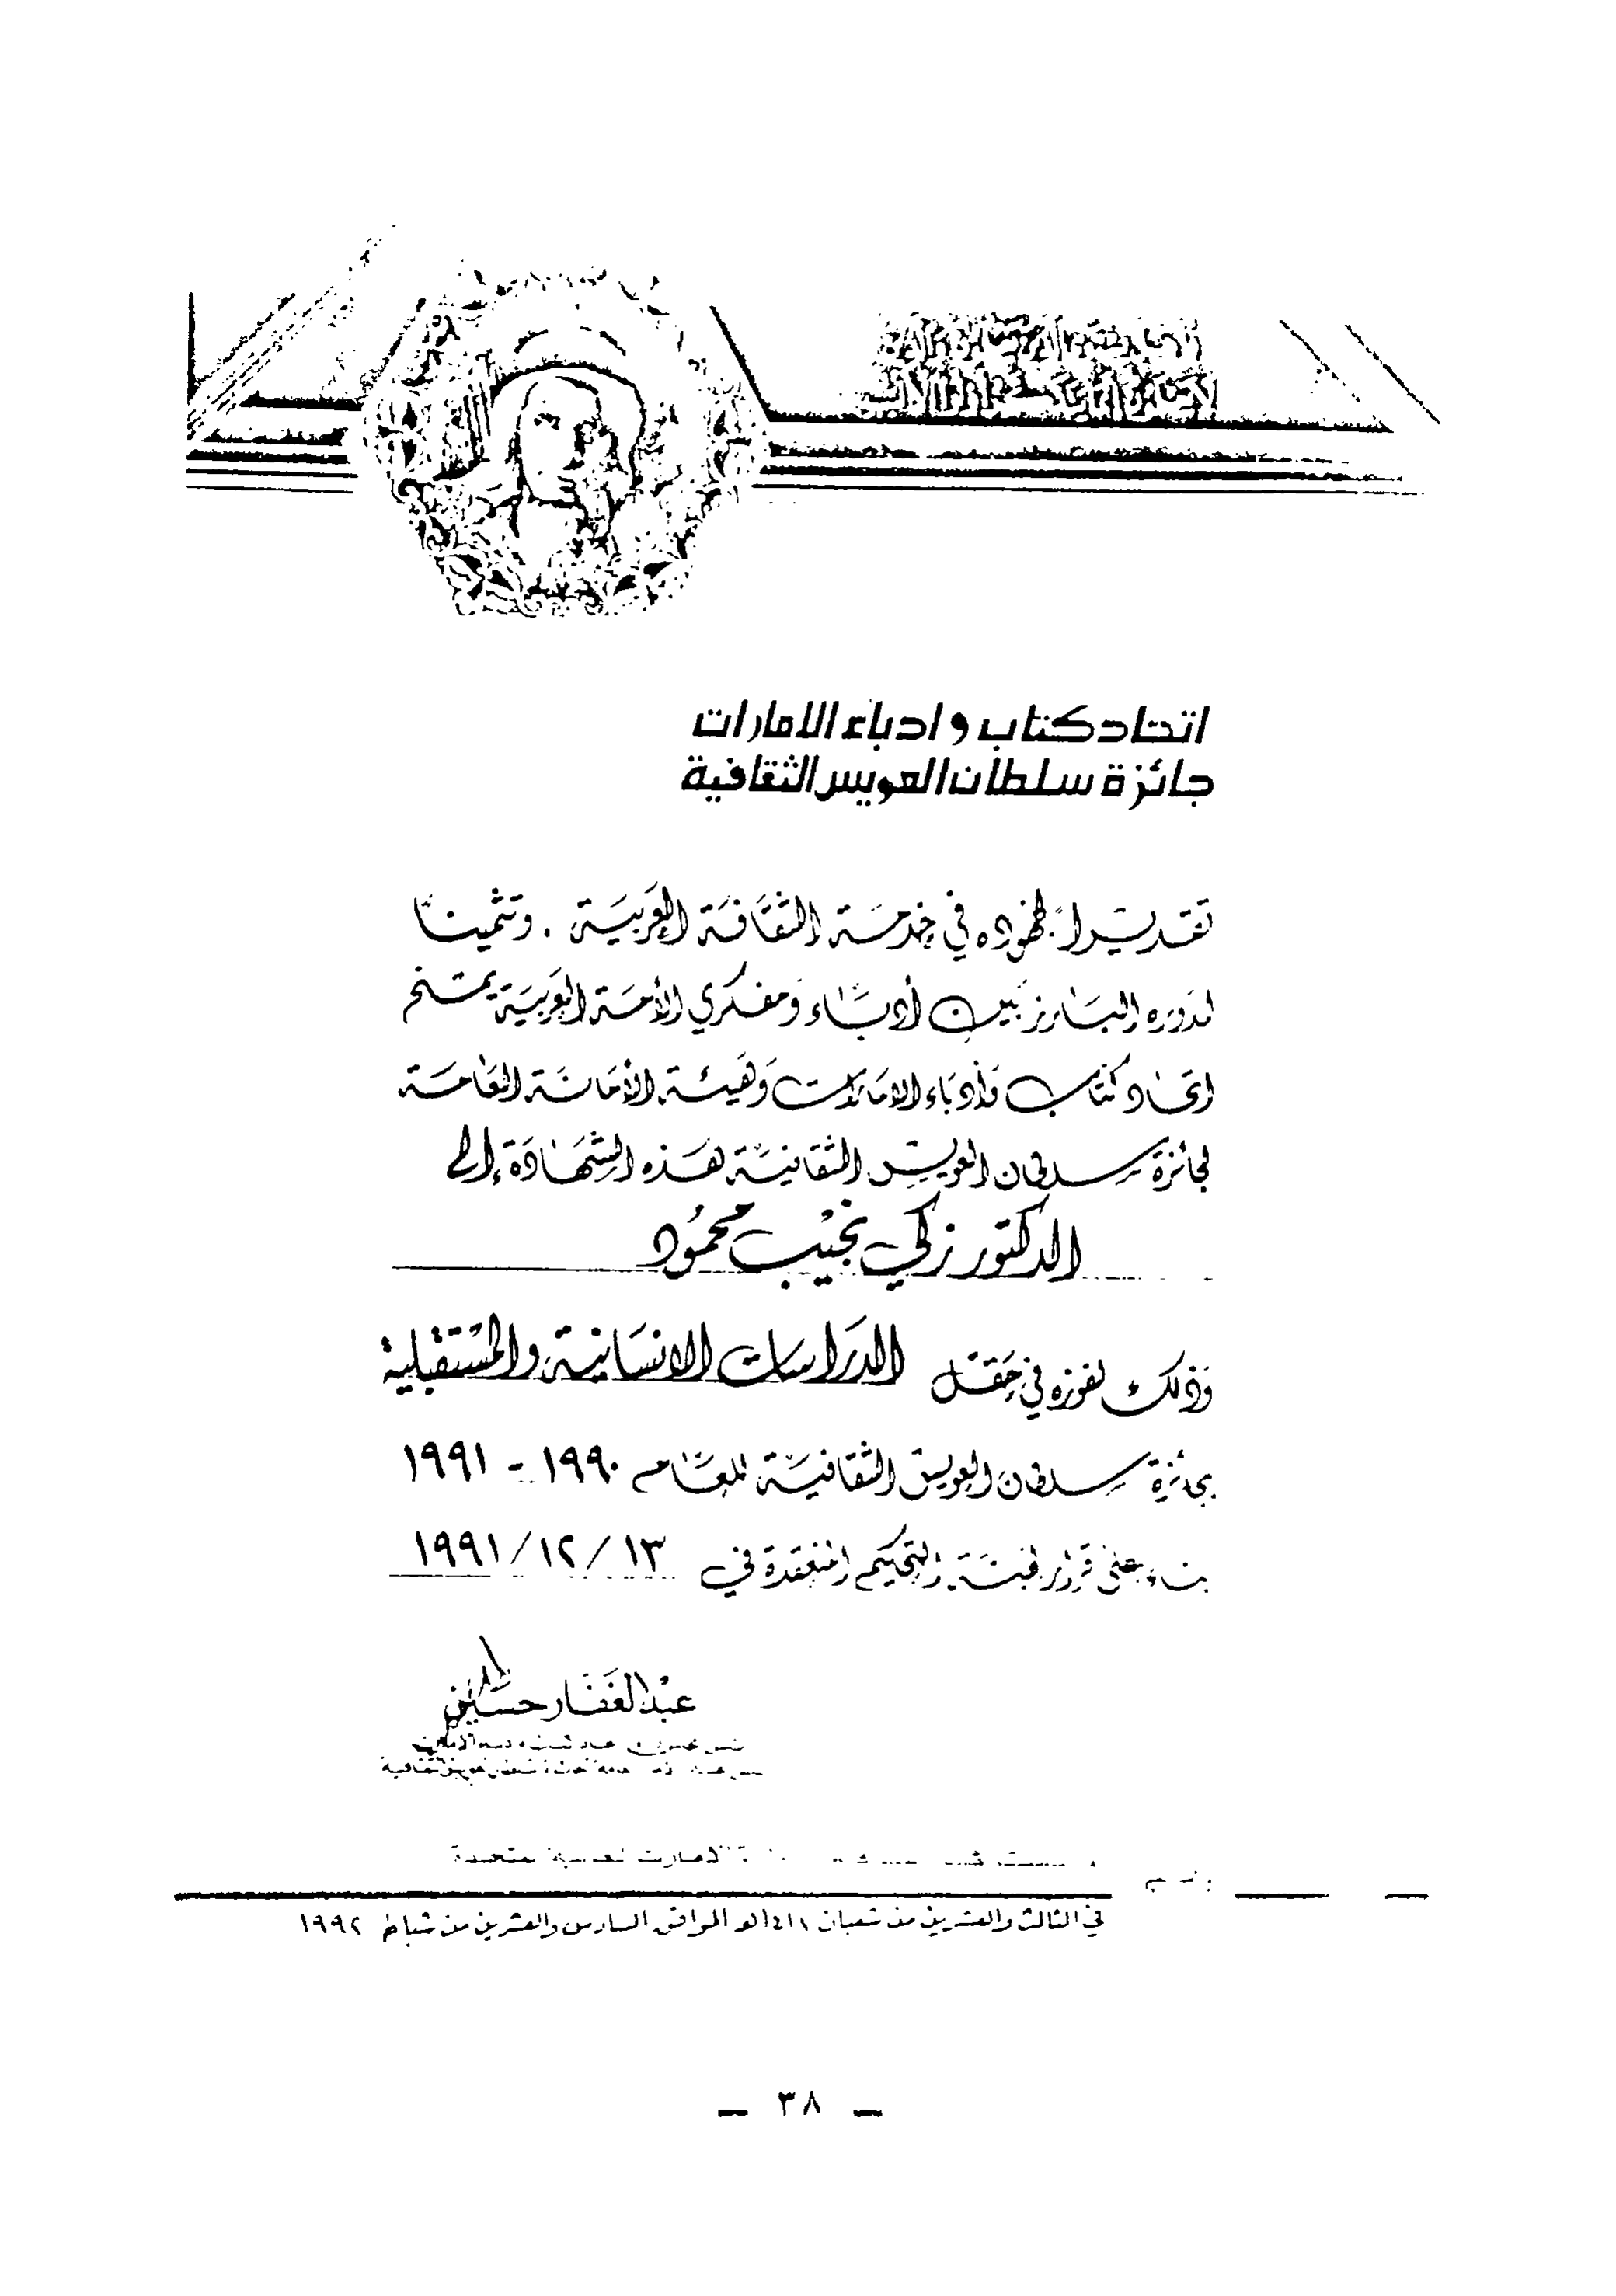 اتحاد كتاب و ادباء الامارات
جائزة سلطان العويس الثقافية
تقديراً لجهوده في خدمة الثقافة العربية . وتثميناً
لدوره البارز بين أدباء ومفكري الأمة العربية يمنح
اتحاد كتاب وأدباء الامارات وهيئة الأمانة العامة
لجائزة سلطان العويس الثقافية هذه الشهادة إلى
الدكتور زكي نجيب محمود
وذلك لفوزه في حقل الدراسات الانسانية والمستقبلية
بجائزة سلطان العويس الثقافية للعام ١٩٩٠ - ١٩٩١
بناء على قرار لجنة التحكيم المنعقدة في ١٣ / ١٢ / ١٩٩١
عبدالغفار حسين
الثقافية
في الثالث والعشرين من شعبان ١٤١٢هـ الموافق السادس والعشرين من شباط ١٩٩٢
– ٣٨ –